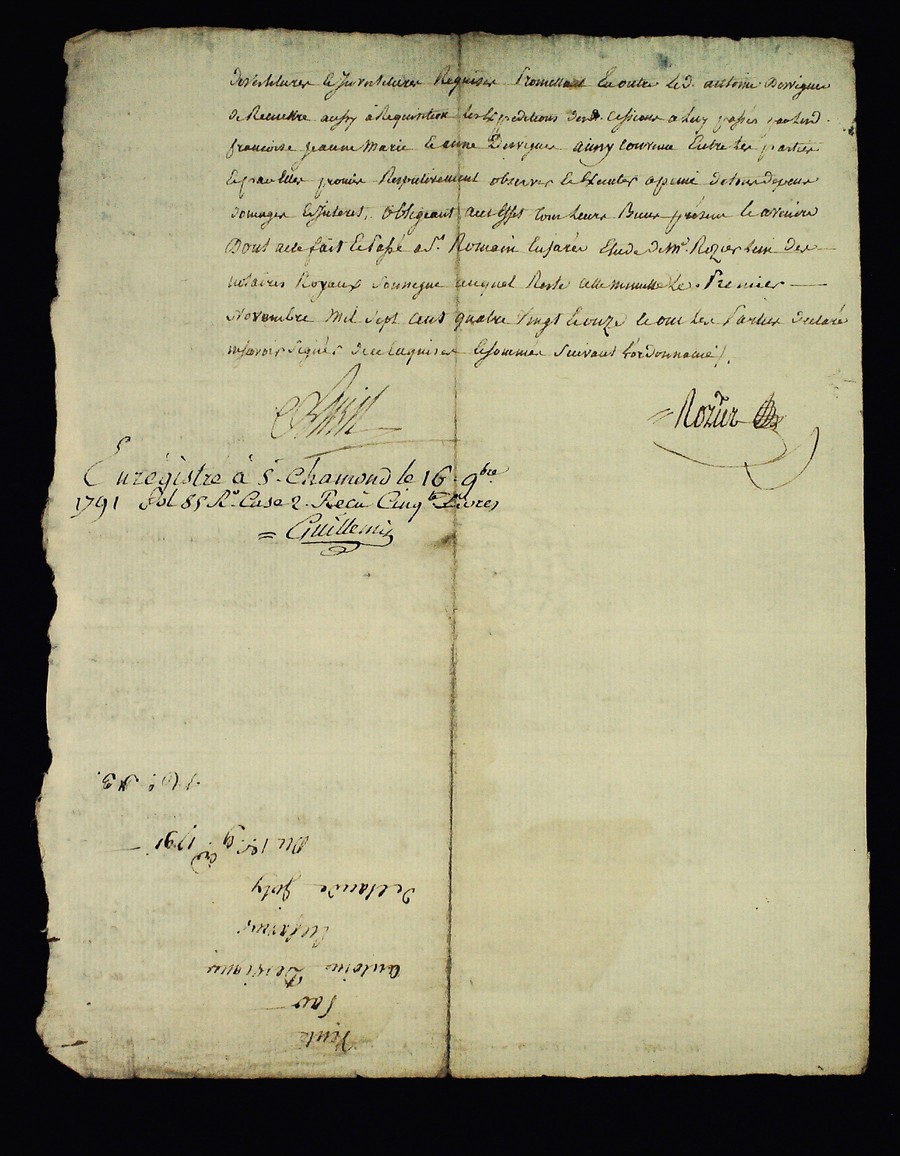 devestitures & Investitures Requises Promettant En outre led. antoine Dervigne
de Remettre aussy à Requisition les Expeditions desd. Cessions à Luy passés par lesd.
francoise jeanne Marie & anne Dervigne ainsy convenu Entre les parties
& par Elles promis Respectivement observer & Executer apeine de tous depens
domages & Interets, obligeant aces effets tous leurs Biens present & avenir
Dont acte fait & Passé a St. Romain En jarés Etude de Me. Rozier L'un des
notaires Royaux soussigné auquel Reste cette minutte Le Premier
Novembre Mil Sept cent quatre vingt & onze & ont les Parties declaré
ne savoir signer de ce Enquises & sommées suivant l'ordonnance /.
Rozier
Enrégistré à St. Chamond le 16. 9bre
1791 fol 85 Ro. Case 2. Recu Cinq Livres
Guillemin
Vente
Par
antoine Dervigne
En farine
de Claude Joly
Du 1er. 9bre. 1791